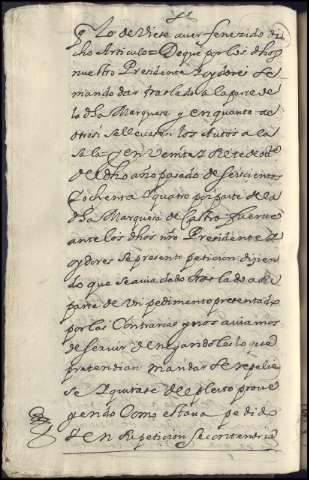 lo de Viese aver fenesido di
cho Articulo = De que por los dhos
nuestro Presidente y oydores se
mando dar traslado a la parte de
la dha Marquesa y en quanto al
otrosi se llevaron los autos a la
sala = y en Veinte y siete de
del dho año pasado de seiscientos
y ochenta y quatro por parte de la
dha Marquesa de Castro fuerte
ante los dhos nro Presidente y
oydores se presento peticion disien
do que se avia dado traslado a su
parte de Un pedimento presentado
por las Contrarias y nos aviamos
de servir denegandoles lo que
pretendian mandar se repelie
se y quitase del pleito prove
yendo Como estava pedido
y en Repeticion se contendria